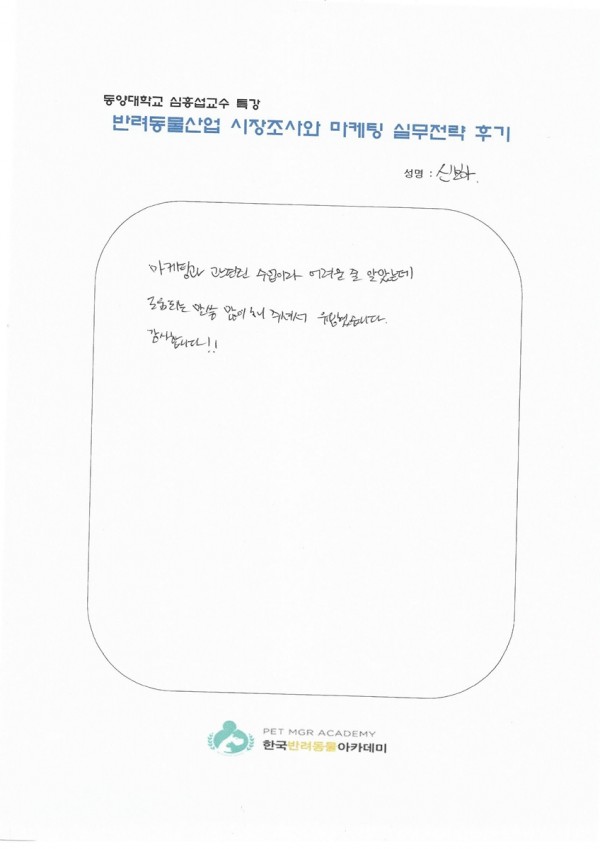 동양대학교 심흥섭교수 특강
반려동물산업 시장조사와 마케팅 실무전략 후기
성명 :
마케팅과 관련된 수업이라 어려운 줄 알았는데
도움되는 말씀 많이 해 주셔서 유익했습니다.
감사합니다!!
PET MGR ACADEMY
한국반려동물아카데미